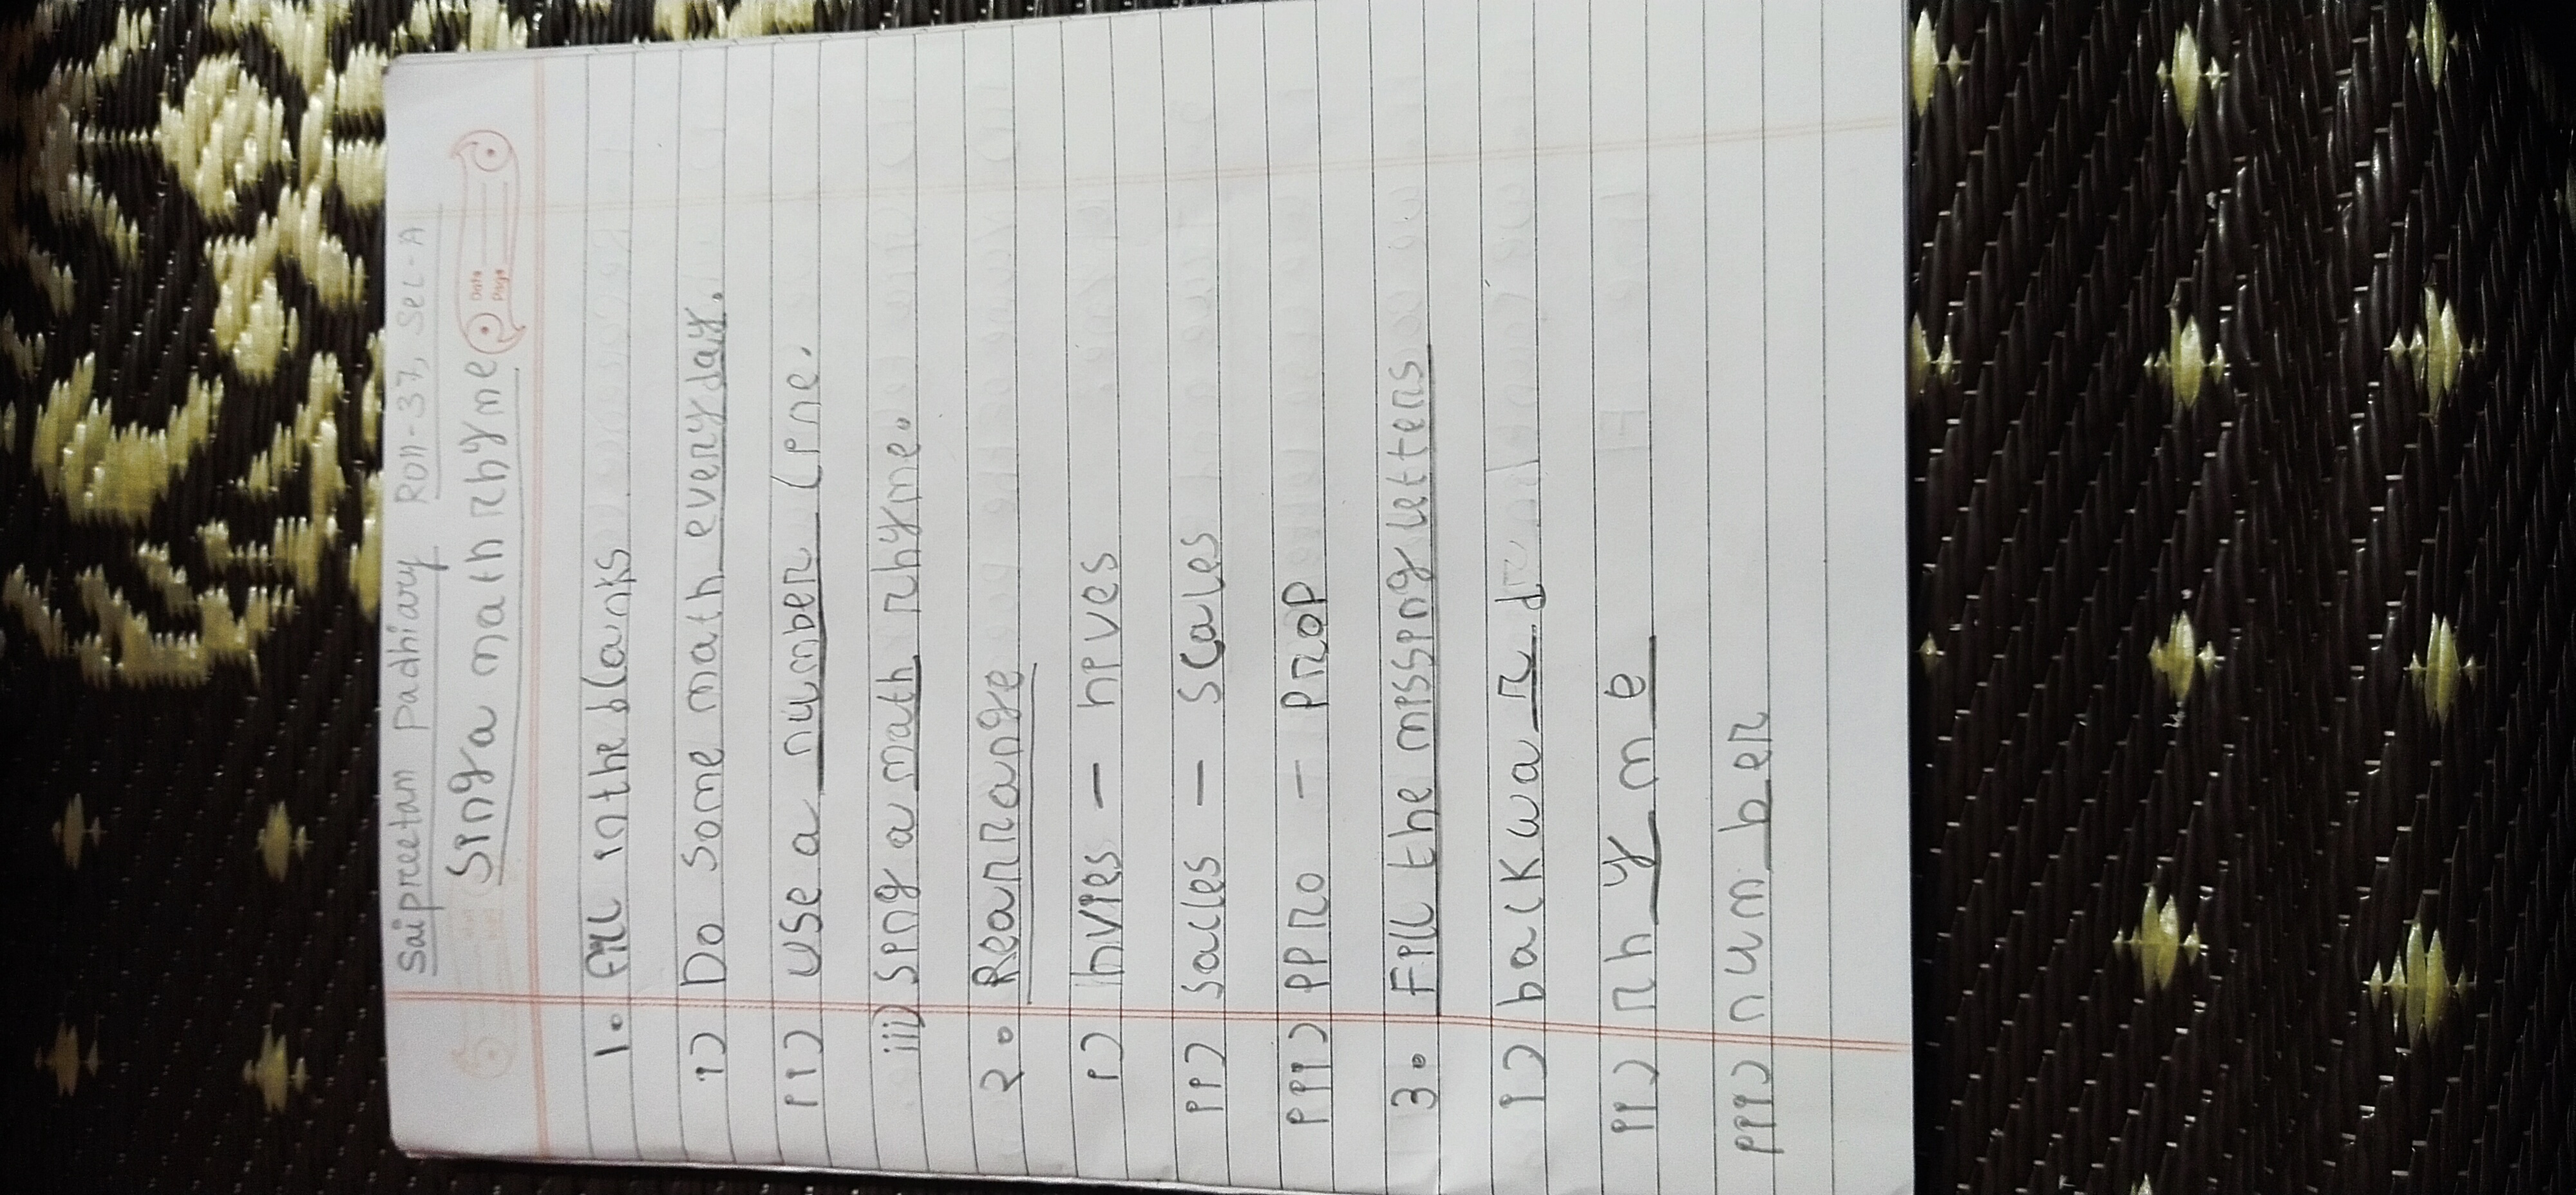 Saipreetam Padhiary Roll-37, Sec-A
Sing a math rhyme
Date
Page
1. Fill in the blanks
i) Do some math everyday.
ii) Use a number line.
iii) Sing a math rhyme.
2. Rearrange
i) hvies - hives
ii) Sacles - Scales
iii) PPro - Prop
3. Fill the missing letters
i) backwa r d
ii) rh y m e
iii) num b er